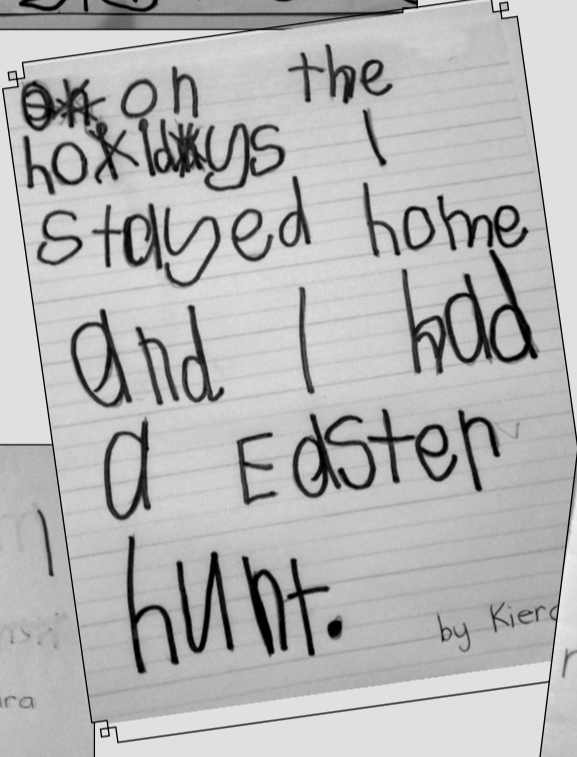 on the
holidays I
stayed home
and I had
a Easter
hunt.
by Kier